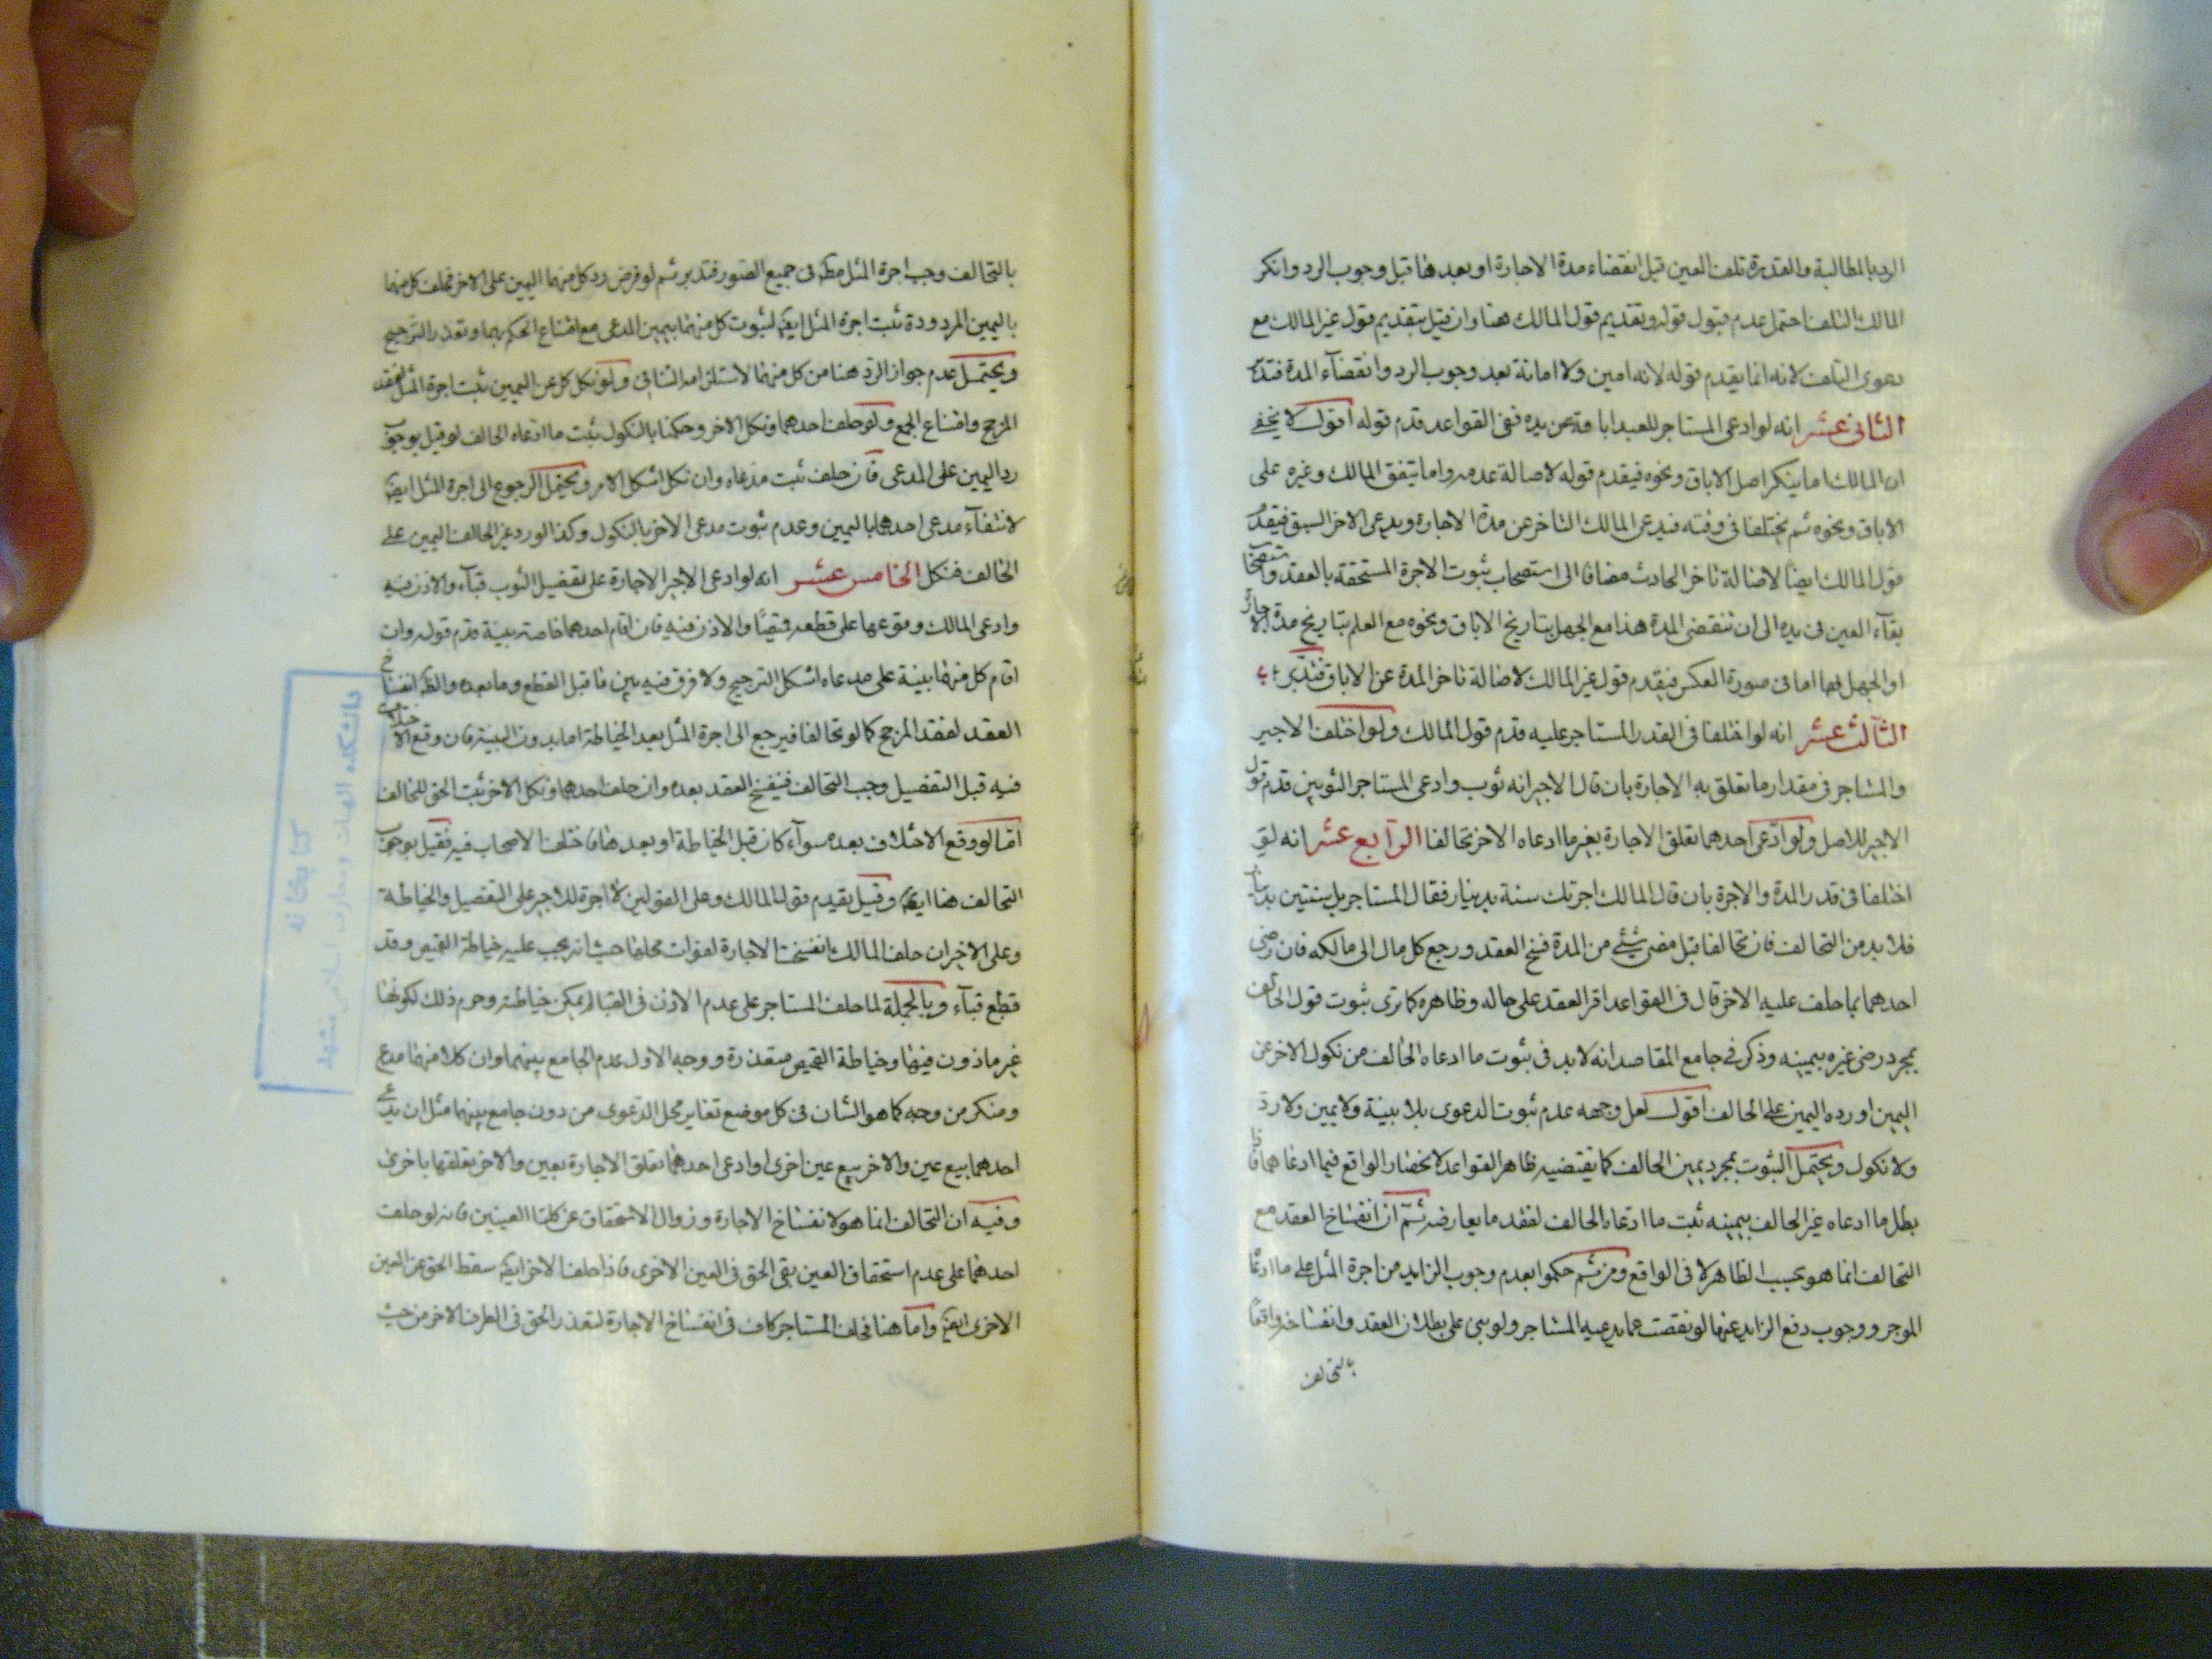 الرد بالمطالبة والقدرة تلف العين قبل انقضاء مدة الاجارة او بعدها قبل وجوب الرد وانكر
المالك التلف احتمل عدم قبول قوله وتقديم قول المالك هنا وان قيل بتقديم قول غير المالك مع
دعوى التلف لانه انما يقدم قوله لانه امين ولا امانة بعد وجوب الرد وانقضآء المدة فتدبر
الثانى عشر انه لو ادعى المستاجر للعبد اباقه عن يده ففى القواعد قدم قوله اقول لا يخفى
ان المالك اما ينكر اصل الاباق ونحوه فيقدم قوله لاصالة عدمه واما يتفق المالك وغيره على
الاباق ونحوه ثم يختلفا فى وقته فيدعى المالك التاخر عن مدة الاجارة ويدعى الاخر السبق فيقدم
قول المالك ايضا لاصالة تاخر الحادث مضافا الى استصحاب ثبوت الاجرة المستحقة بالعقد واستصحاب
بقآء العين فى يده الى ان تنقضى المدة هذا مع الجهل بتاريخ الاباق ونحوه مع العلم بتاريخ مدة الاجارة
او الجهل بهما اما فى صورة العكس فيقدم قول غير المالك لاصالة تاخر المدة عن الاباق فتدبر
الثالث عشر انه لو اختلفا فى القدر المستاجر عليه قدم قول المالك ولو اختلف الاجير
والمستاجر فى مقدار ما تعلق به الاجارة بان قال الاجير انه ثوب وادعى المستاجر الثوبين قدم قول
الاجير للاصل ولو ادعى احدهما تعلق الاجارة بغير ما ادعاه الاخر تحالفا الرابع عشر انه لو
اختلفا فى قدر المدة والاجرة بان قال المالك اجرتك سنة بدينار فقال المستاجر بل سنتين بدينار
فلا بد من التحالف فان تحالفا قبل مضى شيئ من المدة فسخ العقد ورجع كل مال الى مالكه فان رضى
احدهما بما حلف عليه الاخر قال فى القواعد اقر العقد على حاله وظاهره كما ترى ثبوت قول الحالف
بمجرد رضى غيره بيمينه وذكر فى جامع المقاصد انه لا بد فى ثبوت ما ادعاه الحالف من نكول الاخر عن
اليمين او رده اليمين على الحالف اقول لعل وجهه عدم ثبوت الدعوى بلا بينة ولا يمين ولا رد
ولا نكول ويحتمل الثبوت بمجرد يمين الحالف كما تقتضيه ظاهر القواعد لانحصار الواقع فيما ادعاهما فاذا
بطل ما ادعاه غير الحالف بيمينه ثبت ما ادعاه الحالف لفقد ما يعارضه ثم ان انفساخ العقد مع
التحالف انما هو بحسب الظاهر لا فى الواقع ومن ثم حكموا بعدم وجوب الزايد من اجرة المثل على ما ادعاه
الموجر ووجوب دفع الزايد عنها لو نقصت عما يدعيه المستاجر ولو بنى على بطلان العقد وانفساخه واقعا
بالتحالف
بالتحالف وجب اجرة المثل مطلقا فى جميع الصور فتدبر ثم لو فرض رد كل منهما اليمين على الاخر فحلف كل منهما
باليمين المردودة ثبت اجرة المثل ايضا لثبوت كل منهما بيمين المدعى مع امتناع الحكم بهما وتعذر الترجيح
ويحتمل عدم جواز الرد هنا من كل منهما لاستلزامه التنافى ولو نكل كل عن اليمين ثبت اجرة المثل لفقد
المرجح وامتناع الجمع ولو حلف احدهما ونكل الاخر وحكمنا بالنكول ثبت ما ادعاه الحالف لو قيل بوجوب
رد اليمين على المدعى فان حلف ثبت مدعاه وان نكل اشكل الامر ويحتمل الرجوع الى اجرة المثل ايضا
لانتفآء مدعى احدهما باليمين وعدم ثبوت مدعى الاخر بالنكول وكذا لو رد غير الحالف اليمين على
الحالف فنكل الخامس عشر انه لو ادعى الاجير الاجارة على تفصيل الثوب قبآء والاذن فيه
وادعى المالك وقوعها على قطعه قميصا والاذن فيه فان اقام احدهما خاصة بينة قدم قوله وان
اقام كل منهما بينة على مدعاه اشكل الترجيح ولا فرق فيه بين ما قبل القطع وما بعده والظ انفساخ
العقد لفقد المرجح كما لو تحالفا فيرجع الى اجرة المثل بعد الخياطة اما بدون البينة فان وقع الاختلاف
فيه قبل التفصيل وجب التحالف فينفسخ العقد بعده وان حلف احدهما ونكل الاخر ثبت الحق للحالف
اما لو وقع الاختلاف بعده سوآء كان قبل الخياطة او بعدها فاختلف الاصحاب فيه فقيل بوجوب
التحالف هنا ايضا وقيل بقديم قول المالك وعلى القولين لا اجرة للاجير على التفصيل والخياطة
وعلى الاخير ان حلف المالك انفسخت الاجارة لفوات محلها حيث انه يجب عليه خياطة القميص وقد
قطع قبآء وبالجملة لما حلف المستاجر على عدم الاذن فى القبا لم يمكن خياطته وحرم ذلك لكونها
غير ماذون فيها وخياطة القميص متعذرة ووجه الاول عدم الجامع بينهما وان كلا منهما مدع
ومنكر من وجه كما هو الشان فى كل موضع تغاير محل الدعوى من دون جامع بينهما مثل ان يدعى
احدهما بيع عين والاخر بيع عين اخرى او ادعى احدهما تعلق الاجارة بعين والاخر تعلقها باخرى
وفيه ان التحالف انما هو لانفساخ الاجارة وزوال الاستحقاق عن كلتا العينين فانه لو حلف
احدهما على عدم استحقاق العين بقى الحق فى العين الاخرى فاذا حلف الاخر ايضا سقط الحق عن العين
الاخرى ايضا واما هنا فحلف المستاجر كاف فى انفساخ الاجارة لتعذر الحق فى الطرف الاخر من حيث
كتابخانه
دانشكده الهيات ومعارف اسلامى مشهد